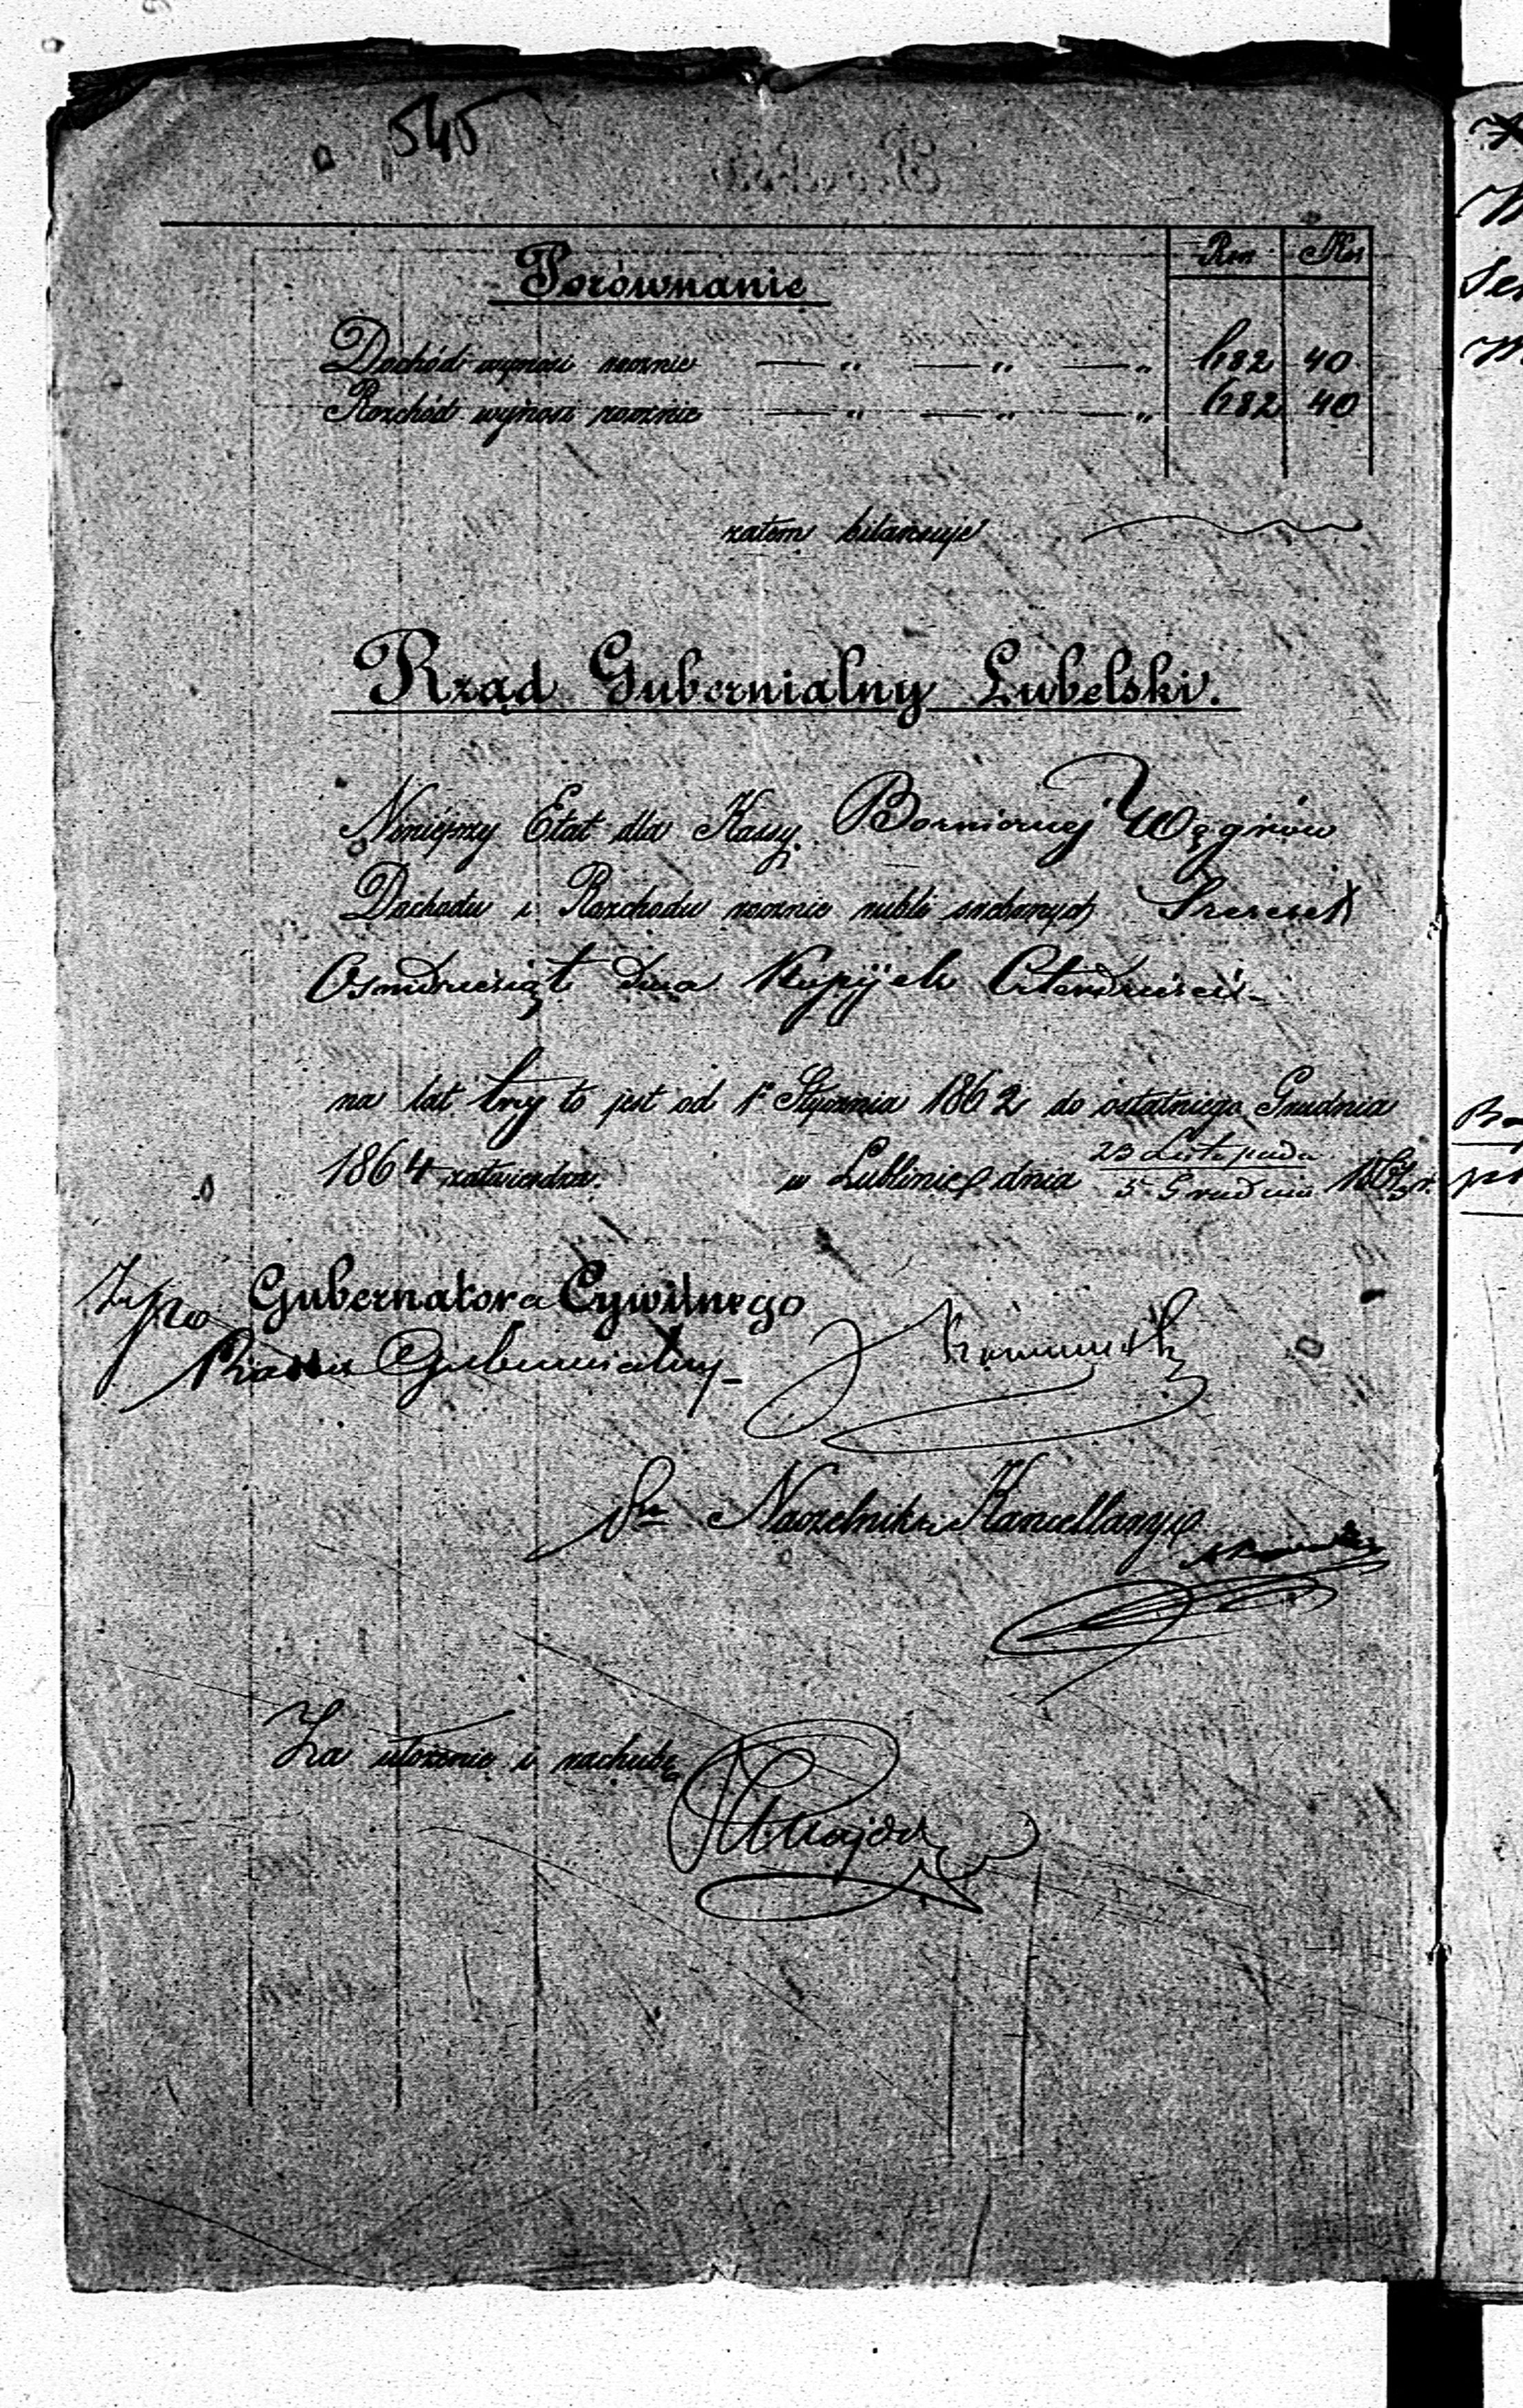 545
Porównanie
Rsr Kop
Dochód wynosi rocznie — „ — „ — „ 682 40
Rozchód wynosi rocznie — „ — „ — „ 682 40
zatem bilansuje
Rząd Gubernialny Lubelski.
Niniejszy Etat dla Kassy Bożniczej Węgrów
Dochodu i Rozchodu rocznie rubli srebrnych Szesset
Osmdziesiąt dwa Kopijek Czterdzieści
na lat trzy to jest od 1 Stycznia 1862 do ostatniego Grudnia
1864 zatwierdza. w Lublinie dnia 23 Listopada
5 Grudnia 1861 r.
Gubernatora Cywilnego
Radca Gubernialny
Naczelnika Kancellaryi
Za ułożenie i rachubę